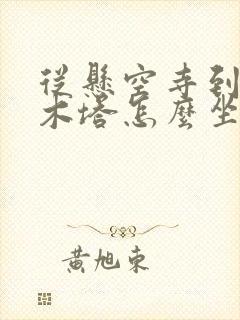 從懸空寺到
木塔怎麼坐
黃旭東